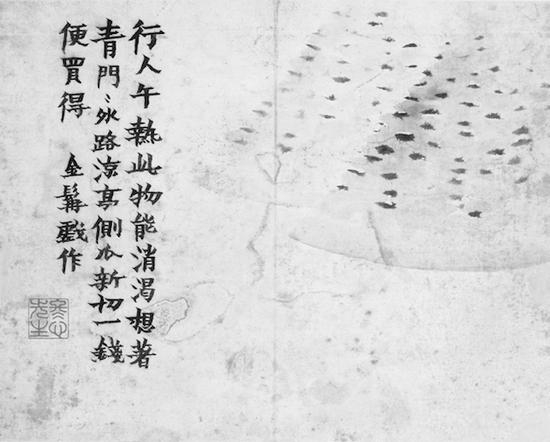 行人午熱此物能消渴想著
青門〻外路涼亭側瓜新切一錢
便買得 金髯戲作
冬心先生